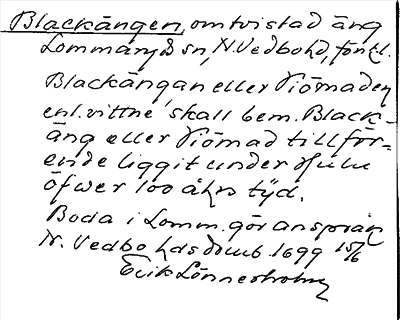 Blackängen, omtvistad äng
Lommaryds sn, N. Vedbo hd, Jönk. l.
Blackängan eller Siömaden
enl. vittne, skall bem. Black-
äng eller Siömad tillför-
ende liggit under Hulu
öfwer 100 åhrs tijd.
Boda i Lomm. gör anspråk
N. Vedbo hds domb. 1699 15/6
Erik Lönnerholm